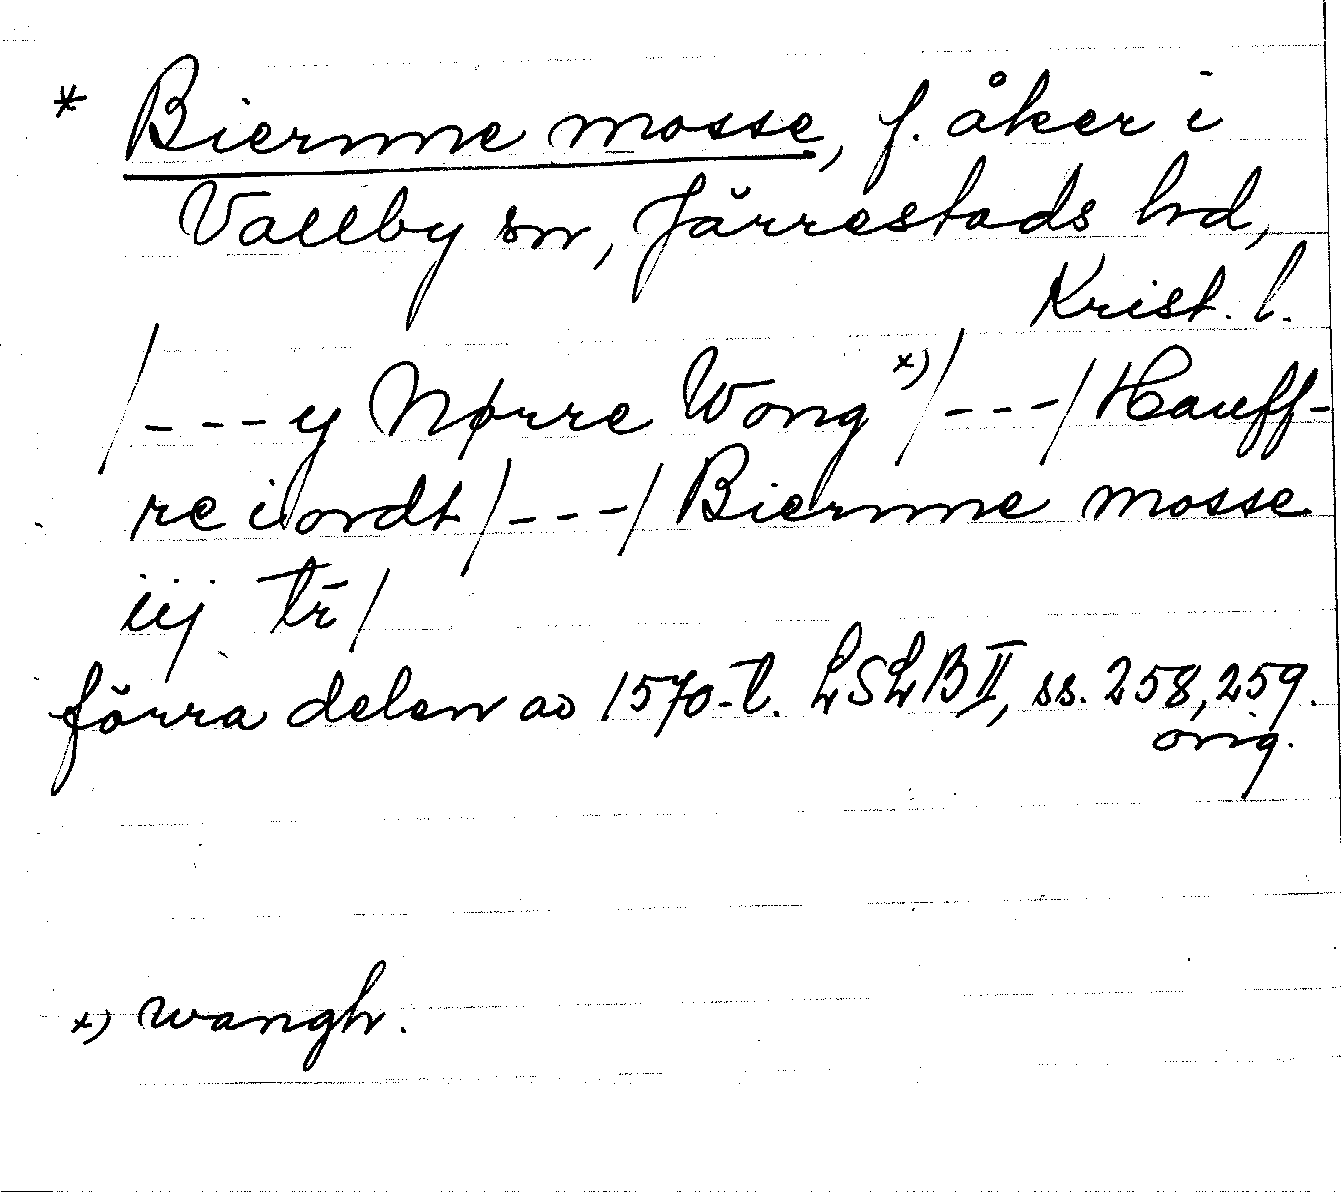 * Biernne mosse, f. åker i
Vallby sn, Järrestads hd,
Krist. l.
/---y Nørre Wong x)/---/Hauff-
re iordt/---/Biernne mosse
iij tr̄/
förra delen av 1570-t. LSLB II, ss. 258, 259.
orig.
x) wangh.